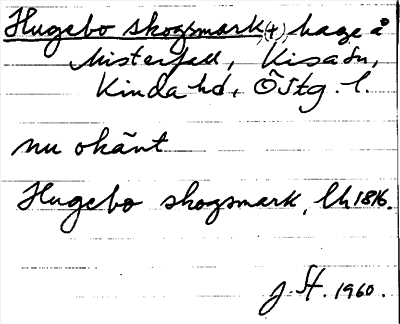 Hugebo skogsmark, (†) hage å
Misterfall, Kisa sn,
Kinda hd, Östg. l.
nu okänt
Hugebo skogsmark, lh 1816.
J. St. 1960.